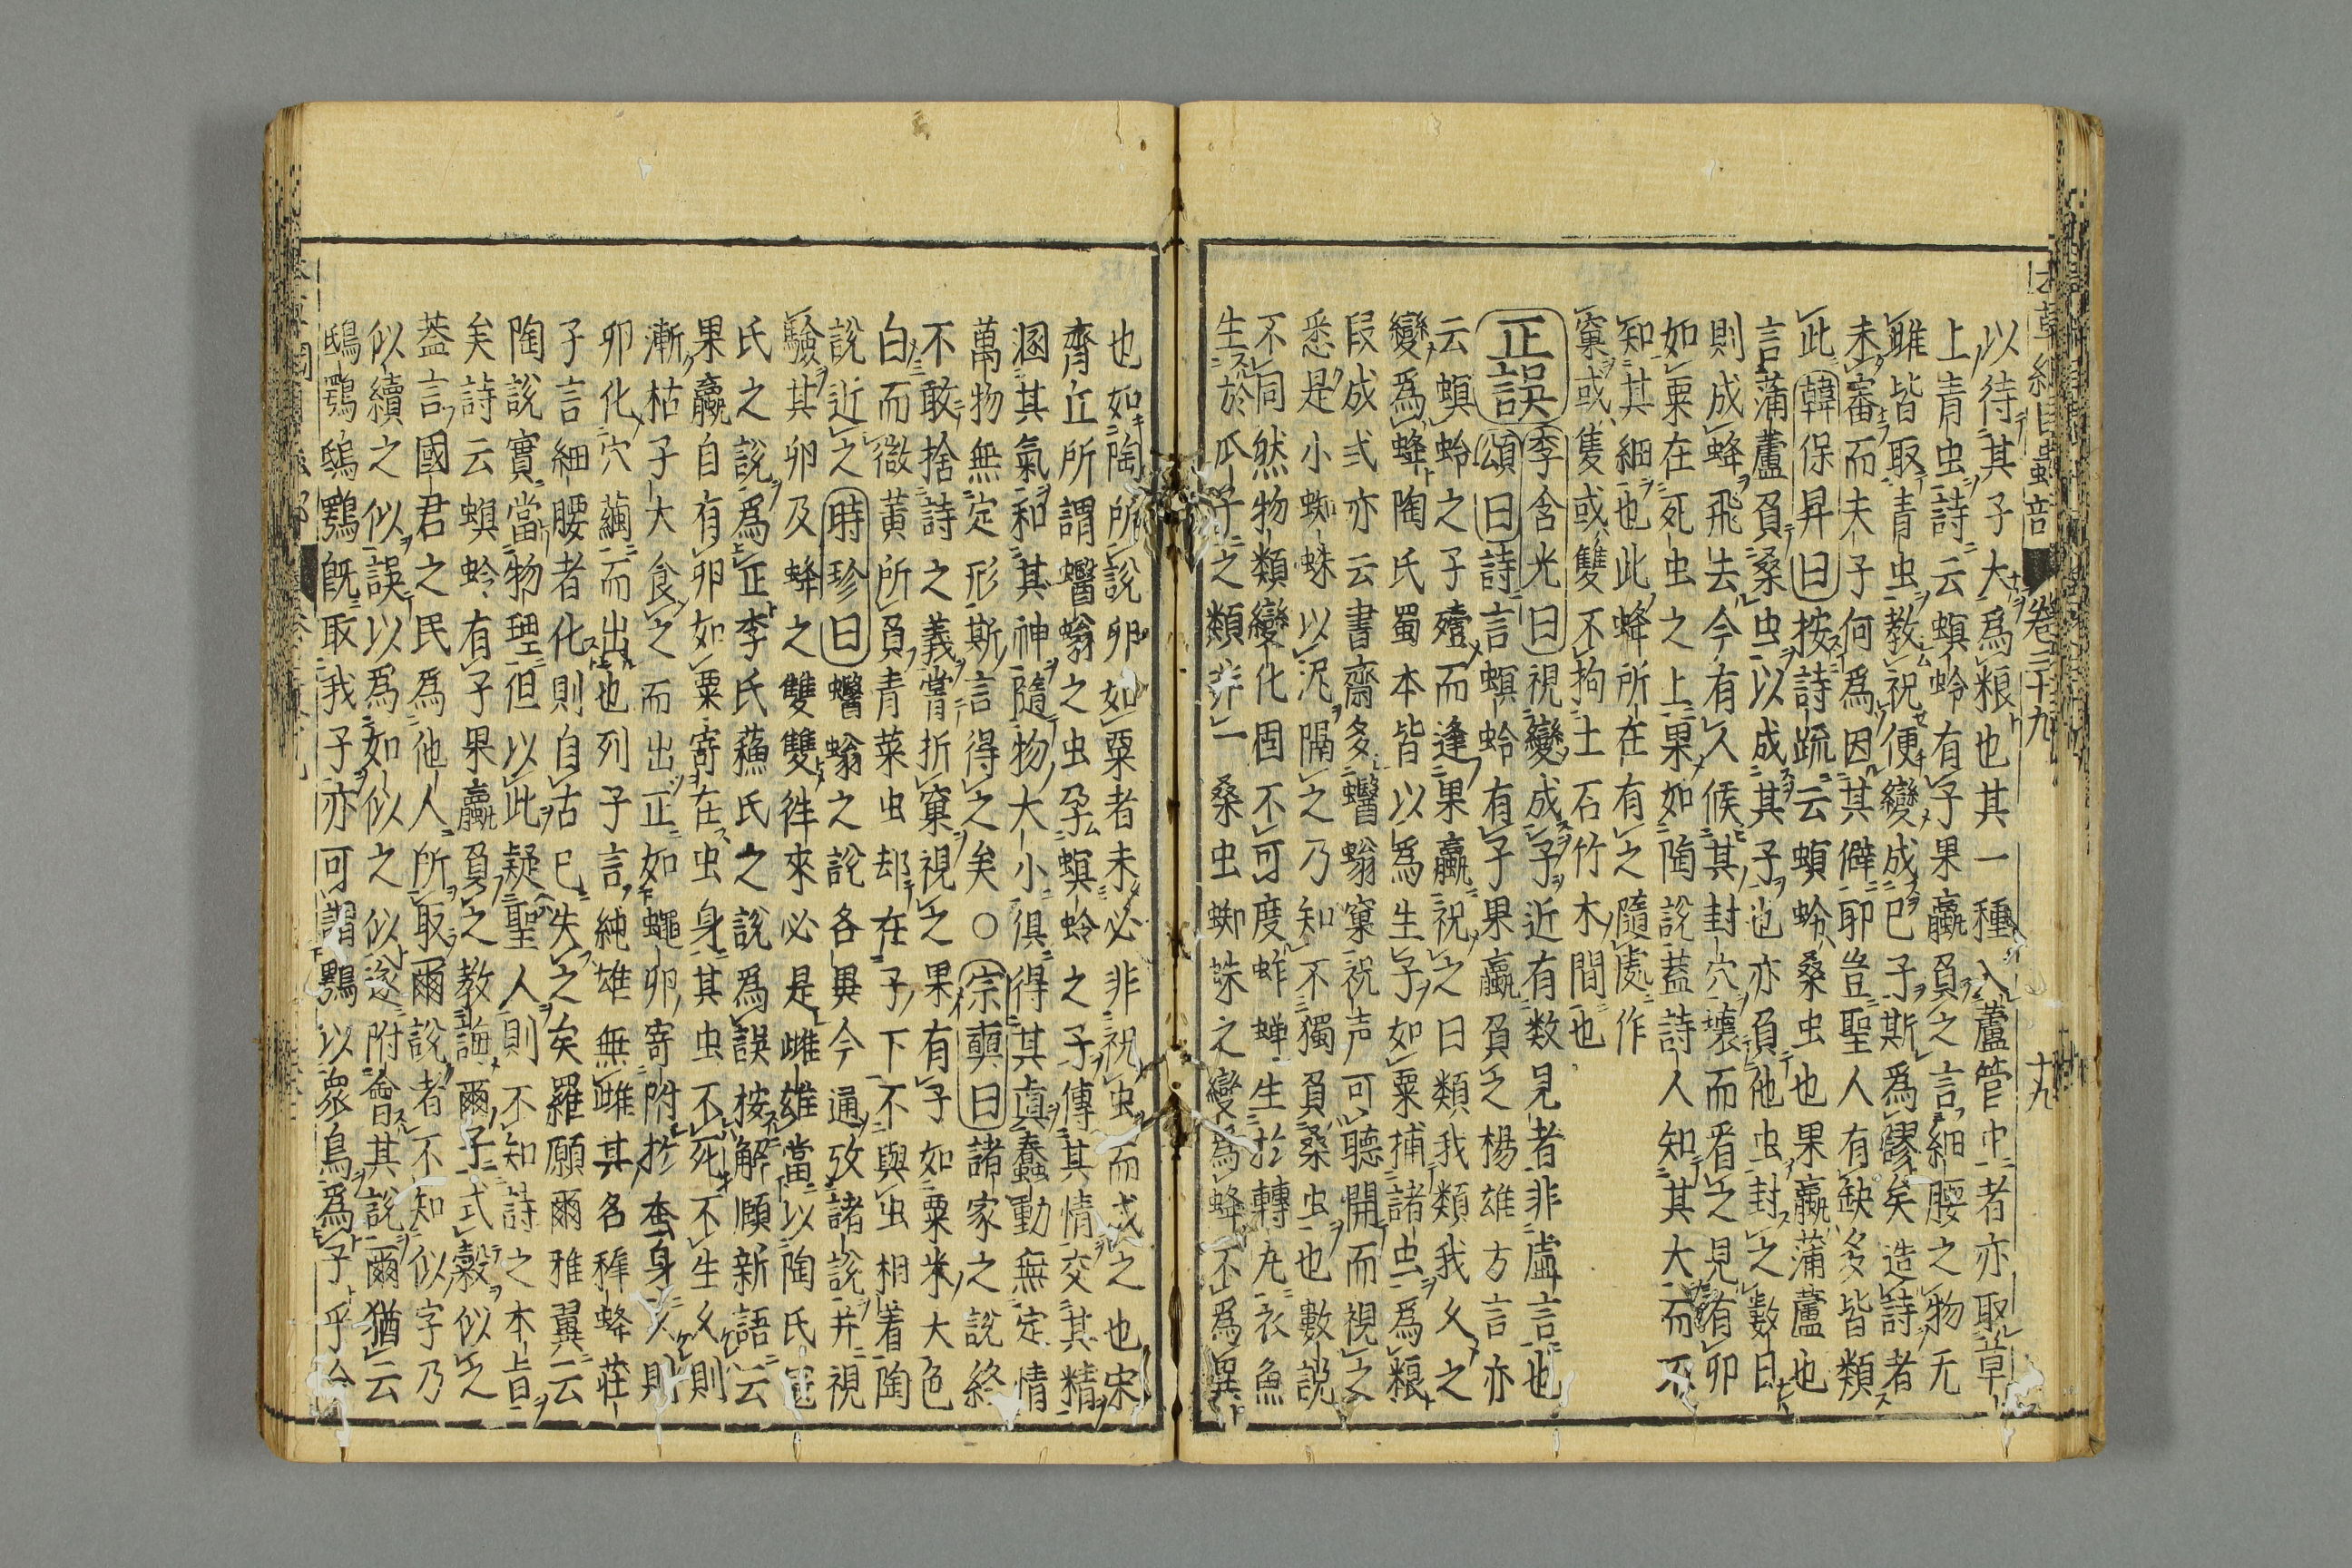 本草綱目蟲部 卷三十九 十九
以待其子大爲粮也其一種入蘆管中者亦取草
上青虫詩云螟蛉有子果蠃負之言細腰之物无
雌皆取青虫教祝便變成已子斯爲謬矣造詩者
未審而夫子何爲因其僻耶豈聖人有缺多皆類
此韓保昇曰按詩疏云螟蛉桑虫也果蠃蒲蘆也
言蒲蘆負桑虫以成其子也亦負他虫封之數日
則成蜂飛去今有人候其封穴壞而看之見有卵
如粟在死虫之上果如陶說蓋詩人知其大而不
知其細也此蜂所在有之隨處作
窠或隻或雙不拘土石竹木間也
正誤李含光曰視變成子近有数見者非虛言也
頌曰詩言螟蛉有子果蠃負之楊雄方言亦
云螟蛉之子殪而逢果蠃祝之曰類我類我久之
變爲蜂陶氏蜀本皆以爲生子如粟捕諸虫爲粮
段成式亦云書齋多蠮螉窠祝声可聽開而視之
悉是小蜘蛛以泥隔之乃知不獨負桑虫也數說
不同然物類變化固不可度蚱蝉生於轉丸衣魚
生於瓜子之類非一桑虫蜘蛛之變爲蜂不爲異
也如陶所說卵如粟者未必非祝虫而成之也宋
齊丘所謂蠮螉之虫孕螟蛉之子傳其情交其精
溷其氣和其神隨物大小俱得其眞蠢動無定情
萬物無定形斯言得之矣○宗奭曰諸家之說終
不敢捨詩之義嘗折窠視之果有子如粟米大色
白而微黃所負青菜虫却在子下不與虫相着陶
說近之時珍曰蠮螉之說各異今通攷諸說并視
驗其卵及蜂之雙雙徃來必是雌雄當以陶氏寇
氏之說爲正李氏蘓氏之說爲誤按解頤新語云
果蠃自有卵如粟寄在虫身其虫不死不生久則
漸枯子大食之而出正如蠅卵寄附於蚕身久則
卵化穴繭而出也列子言純雄無雌其名穉蜂莊
子言細腰者化則自古已失之矣羅願爾雅翼云
陶說實當物理但以此疑聖人則不知詩之本旨
矣詩云螟蛉有子果蠃負之教誨爾子式糓似之
蓋言國君之民爲他人所取爾說者不知似字乃
似續之似誤以爲如似之似遂附會其說爾猶云
鴟鴞鴟鴞旣取我子亦可謂鴞以衆鳥爲子乎今